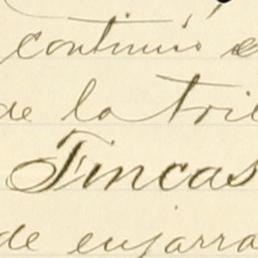 continuó e
de la tri
Fincas
de enjarra